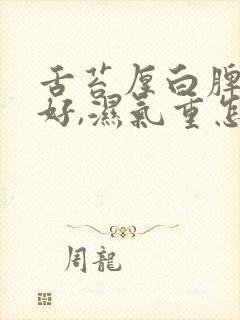 舌苔厚白脾
好,濕氣重怎
周龍